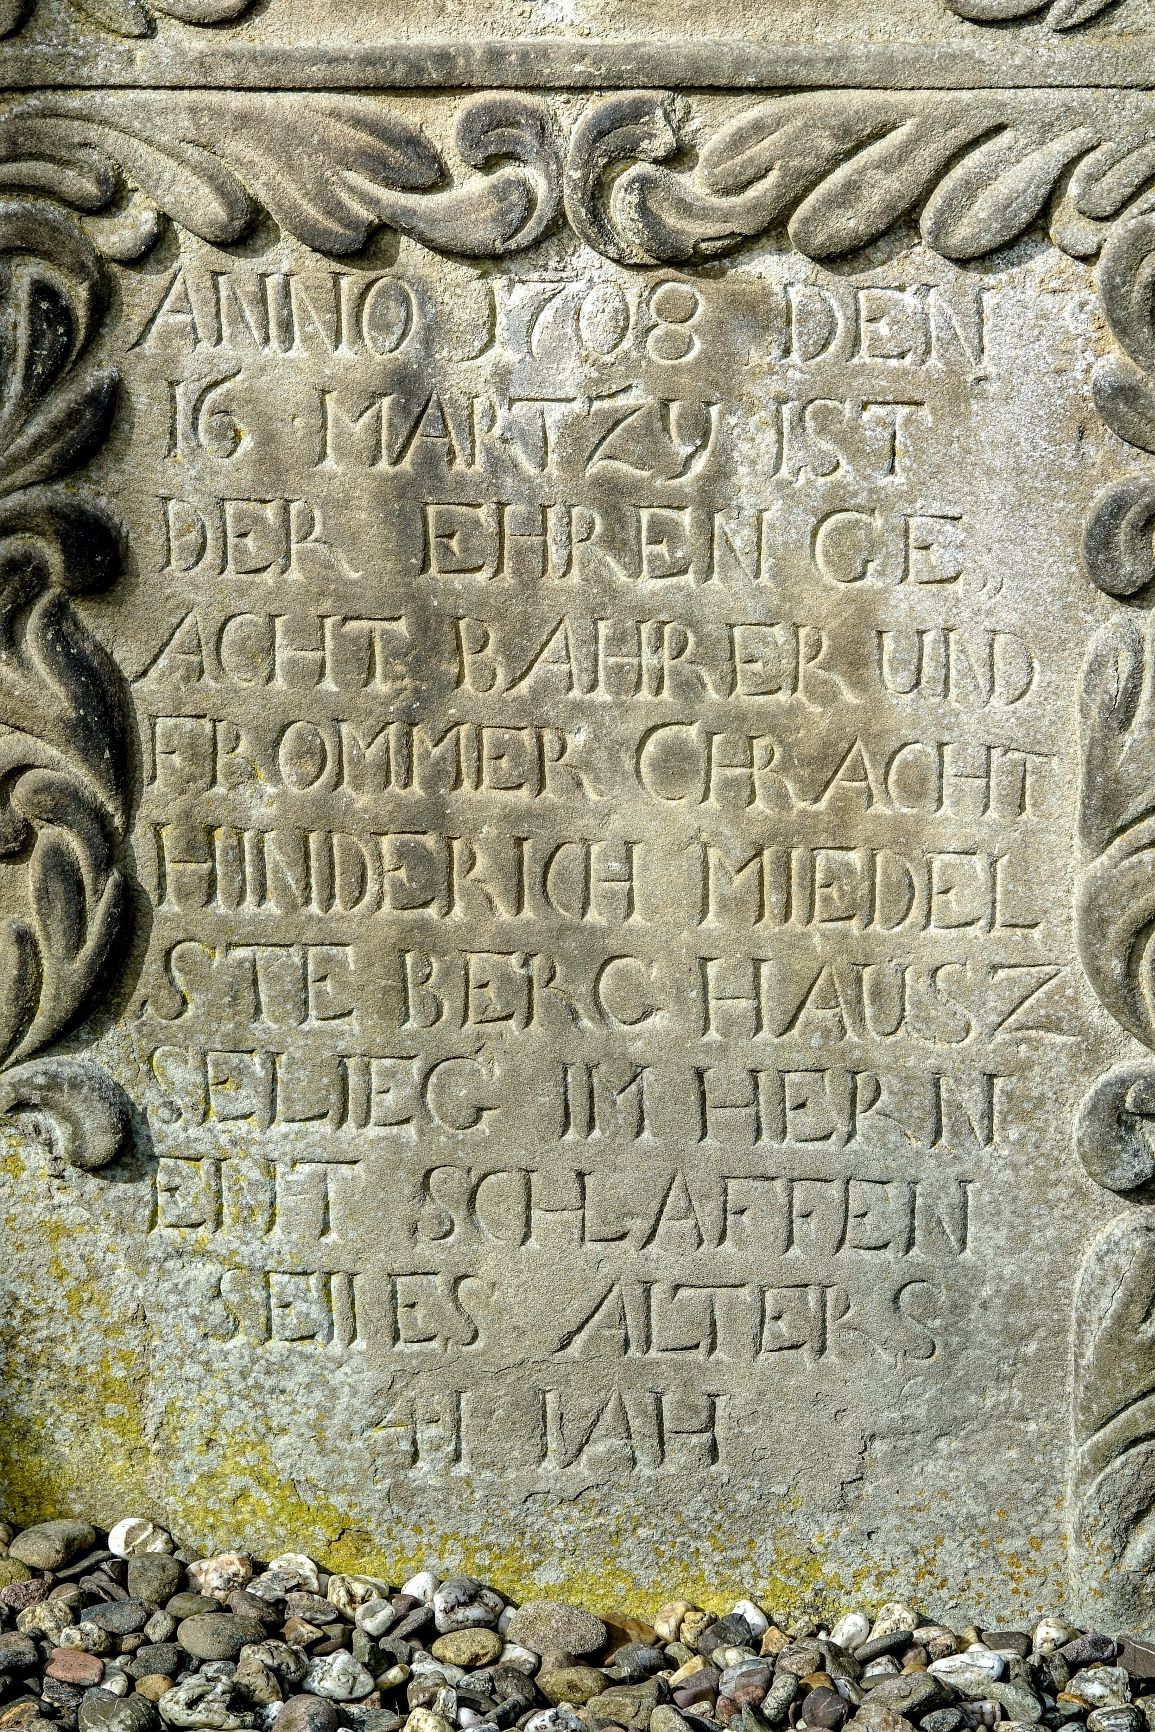 ANNO 1708 DEN
16 MARTZY IST
DER EHREN GE,,
ACHT BAHRER UND
FROMMER CHR ACHT
HINDERICH MIEDEL
STE BERG HAUSZ
SELIEG IN HER N
ENT SCHLAFFEN
SEIIES ALTERS
41 IAH